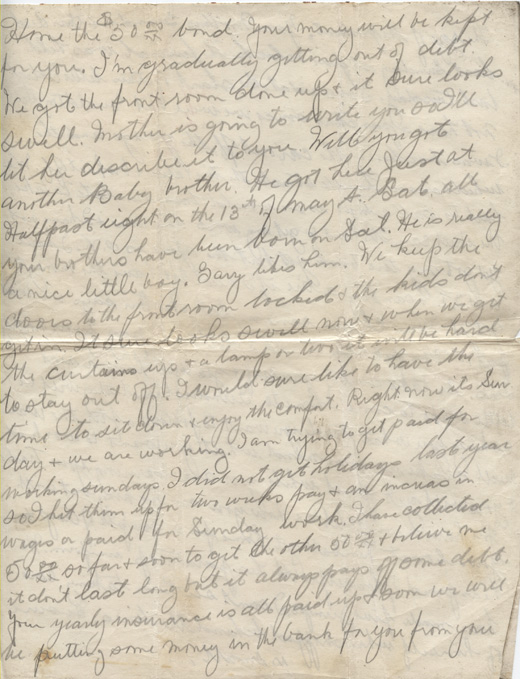 Home the $50 00/xx bond. Your money will be kept
for you. I'm gradually getting out of debt.
We got the front room done up & it sure looks
swell. Mother is going to write you so I'll
let her describe it to you. Well you got
another Baby brother. He got here Just at
Half past eight on the 13th of May A. Sat. all
your brothers have been born on Sat. He is really
a nice little boy. Gary likes him. We keep the
doors to the front room locked & the kids don't
get in. It sure looks swell now & when we get
the curtains up & a lamp or two it will be hard
to stay out off. I would sure like to have the
time to sit down & enjoy the comfort. Right now its Sun
day & we are working. I am trying to get paid for
working sundays. I did not get holidays last year
so I hit them up for two weeks pay & an increas in
wages or paid for Sunday work. I have collected
50 00/xx so far & soon to get the other 50 00/xx & believe me
it don't last long but it always pays off some debt.
Your yearly insurance is all paid up & soon we will
be putting some money in the bank for you from your